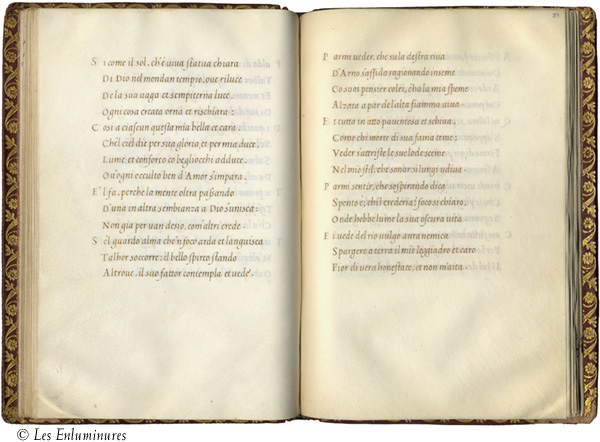 Si come il sol, ch'é viva statua chiara
Di Dio nel mondan tempio, ove riluce
De la sua vaga et sempiterna luce,
Ogni cosa creata orna et rischiara:
Cosi a ciascun questa mia bella et cara
Ch'el ciel diè per sua gloria, et per mia duce,
Lume et conforto co begliocchi adduce,
Ov'ogni occulto ben d'Amor s'impara.
E' l fa, perche la mente oltra passando
D'una in altra sembianza a Dio s'unisca:
Non gia per van desio, com'altri crede
Se'l guardo alma ch'n foco arda et languisca
Talhor soccorre, il bello spirto stando
Altrove, il suo fattor contempla et vede.
23
Parmi veder, che su la destra riva
D'Arno s'assida ragionando inseme
Co suoi pensier colei, ch'a la mia speme
Alzata a par de l'alta fiamma viva
Et tutta in atto paventosa et schiva,
Come chi morte di sua fama teme:
Veder s'attriste le sue lode sceme
Nel mio stil, che sonar si lungi udiva
Parmi sentir, che sospirando dica
Spento è, ch'il crederia? foco si chiaro,
Onde hebbe lume la sua oscura vita
Et vede del rio vulgo aura nemica
Spargere a terra il mio leggiadro et caro
Fior di vera honestate, et non m'aita.
© Les Enluminures